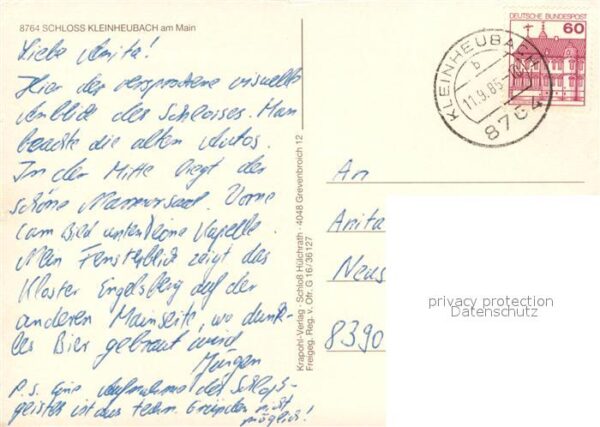 8764 SCHLOSS KLEINHEUBACH am Main
Liebe Anita!
Hier der versprochene visuelle
Anblick des Schlosses. Man
beachte die alten Autos.
In der Mitte liegt der
schöne Marmorsaal. Vorne
(am Bild unten) eine Kapelle.
Mein Fensterblick zeigt das
Kloster Engelsberg auf der
anderen Mainseite, wo dunk-
les Bier gebraut wird
Jürgen
P.S. Eine Aufnahme des Schloß-
geistes ist aus techn. Gründen nicht
möglich!
Krapohl-Verlag · Schloß Hülchrath · 4048 Grevenbroich 12
Freigeg. Reg. v. Ofr. G 16/36 127
DEUTSCHE BUNDESPOST
60
KLEINHEUBACH
b
11.9.85
8764
An
Anita
Neus
8390
privacy protection
Datenschutz